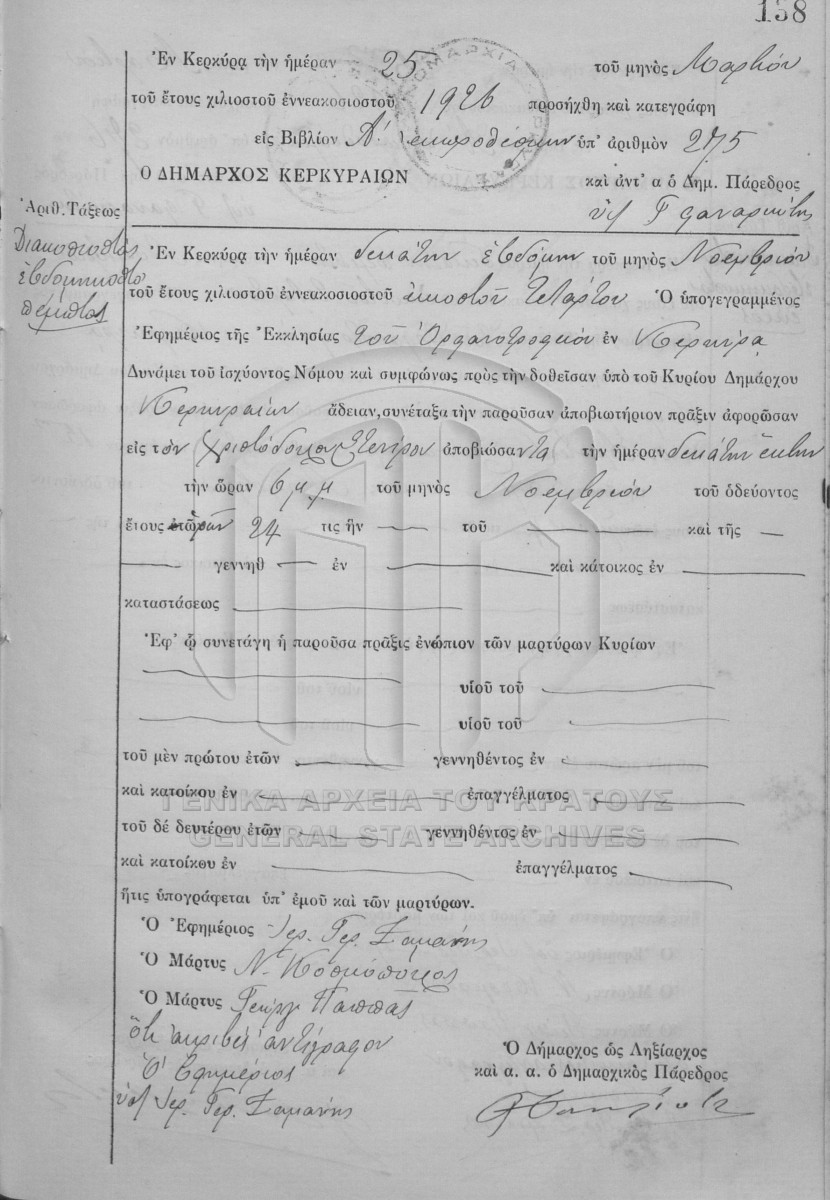 138
Ἐν Κερκύρᾳ τὴν ἡμέραν 25 τοῦ μηνὸς Μαρτίου
τοῦ ἔτους χιλιοστοῦ ἐννεακοσιοστοῦ 1926 προσήχθη καὶ κατεγράφη
εἰς Βιβλίον Α! ὑπ' ἀριθμὸν 275
Ο ΔΗΜΑΡΧΟΣ ΚΕΡΚΥΡΑΙΩΝ καὶ ἀντ' α ὁ Δημ. Πάρεδρος
Ἀριθ. Τάξεως
Διακοσιοστὸς
ἑβδομηκοστὸ
πέμπτος
Ἐν Κερκύρᾳ τὴν ἡμέραν δεκάτην ἑβδόμην τοῦ μηνὸς Νοεμβρίου
τοῦ ἔτους χιλιοστοῦ ἐννεακοσιοστοῦ εἰκοστοῦ τετάρτου Ὁ ὑπογεγραμμένος
Ἐφημέριος τῆς Ἐκκλησίας τοῦ Ὀρφανοτροφείου ἐν Κερκύρᾳ
Δυνάμει τοῦ ἰσχύοντος Νόμου καὶ συμφώνως πρὸς τὴν δοθεῖσαν ὑπὸ τοῦ Κυρίου Δημάρχου
Κερκυραίων ἄδειαν, συνέταξα τὴν παροῦσαν ἀποβιωτήριον πρᾶξιν ἀφορῶσαν
εἰς τὸν ἀποβιώσαντα τὴν ἡμέραν δεκάτην ἕκτην
τὴν ὥραν 6 μ μ τοῦ μηνὸς Νοεμβρίου τοῦ ὁδεύοντος
ἔτους 24 τις ἦν τοῦ καὶ τῆς
γεννηθ ἐν καὶ κάτοικος ἐν
καταστάσεως
Ἐφ' ᾧ συνετάγη ἡ παροῦσα πρᾶξις ἐνώπιον τῶν μαρτύρων Κυρίων
υἱοῦ τοῦ
υἱοῦ τοῦ
τοῦ μὲν πρώτου ἐτῶν γεννηθέντος ἐν
καὶ κατοίκου ἐν ἐπαγγέλματος
ΓΕΝΙΚΑ ΑΡΧΕΙΑ ΤΟΥ ΚΡΑΤΟΥΣ
τοῦ δὲ δευτέρου ἐτῶν γεννηθέντος ἐν
GENERAL STATE ARCHIVES
καὶ κατοίκου ἐν ἐπαγγέλματος
ἥτις ὑπογράφεται ὑπ' ἐμοῦ καὶ τῶν μαρτύρων.
Ὁ Ἐφημέριος Ἱερ. Γερ.
Ὁ Μάρτυς Ν.
Ὁ Μάρτυς Γεώργ Παππᾶς
ὅτι ἀκριβὲς ἀντίγραφον
Ὁ Ἐφημέριος
Ἱερ. Γερ.
Ὁ Δήμαρχος ὡς Ληξίαρχος
καὶ α. α. ὁ Δημαρχικὸς Πάρεδρος